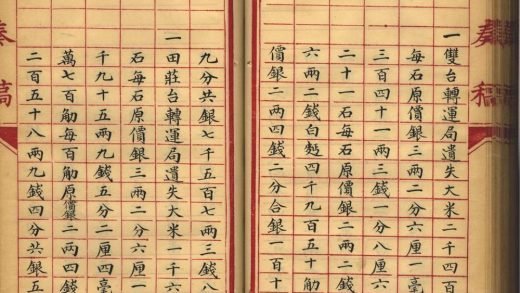 奏稿
一雙台轉運局遺失大米二千四百
每石原價銀三兩二分六厘一毫
三百四十一兩三錢一分八厘六
二十一石每石原價銀二兩二錢
六兩二錢白麪四千九百五十觔
價銀二兩四錢二分合銀一百十
九分共銀七千五百七兩三錢八
一田莊台轉運局遺失大米一千六
石每石原價銀三兩二分六厘一
千九十五兩九錢五分二厘四毫
萬七百觔每百觔原價銀二兩四錢
二百五十八兩九錢四分共銀五
奏稿